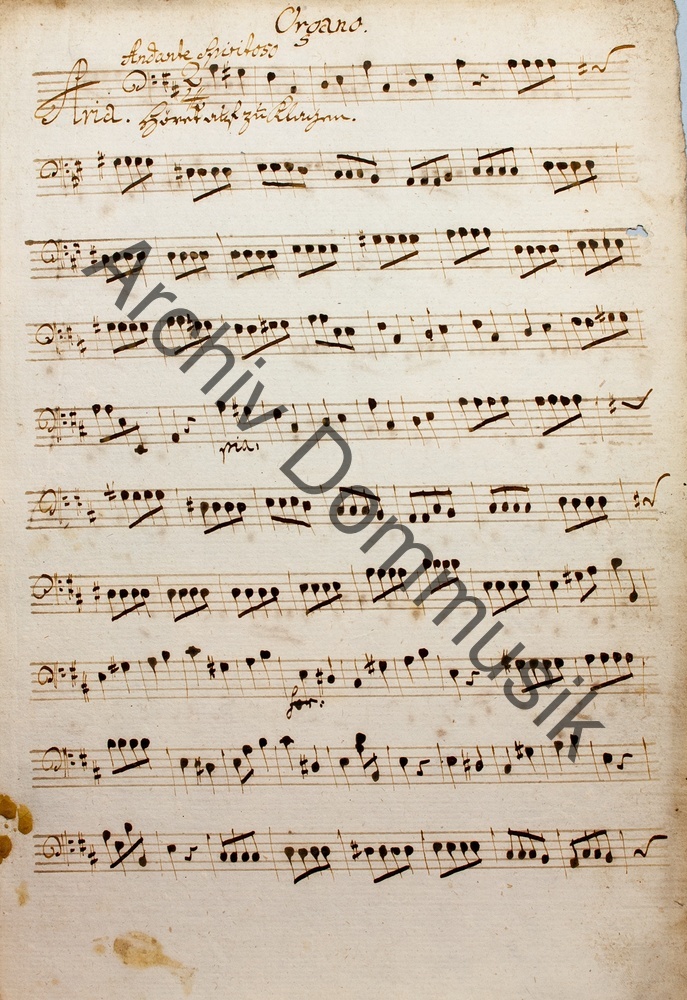 Organo.
Andante Spiritoso
Aria. Höret auf zu Klagen.
pia.
for:
Archiv Dommusik